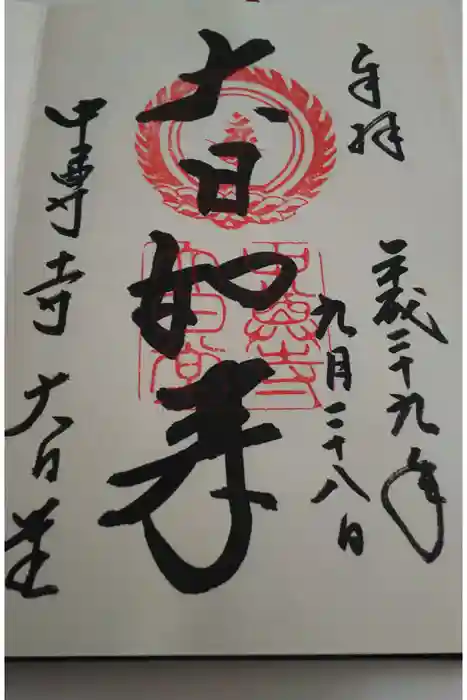 奉拝
平成二十九年
九月二十八日
大日如来
中尊寺 大日堂
中尊寺
大日堂